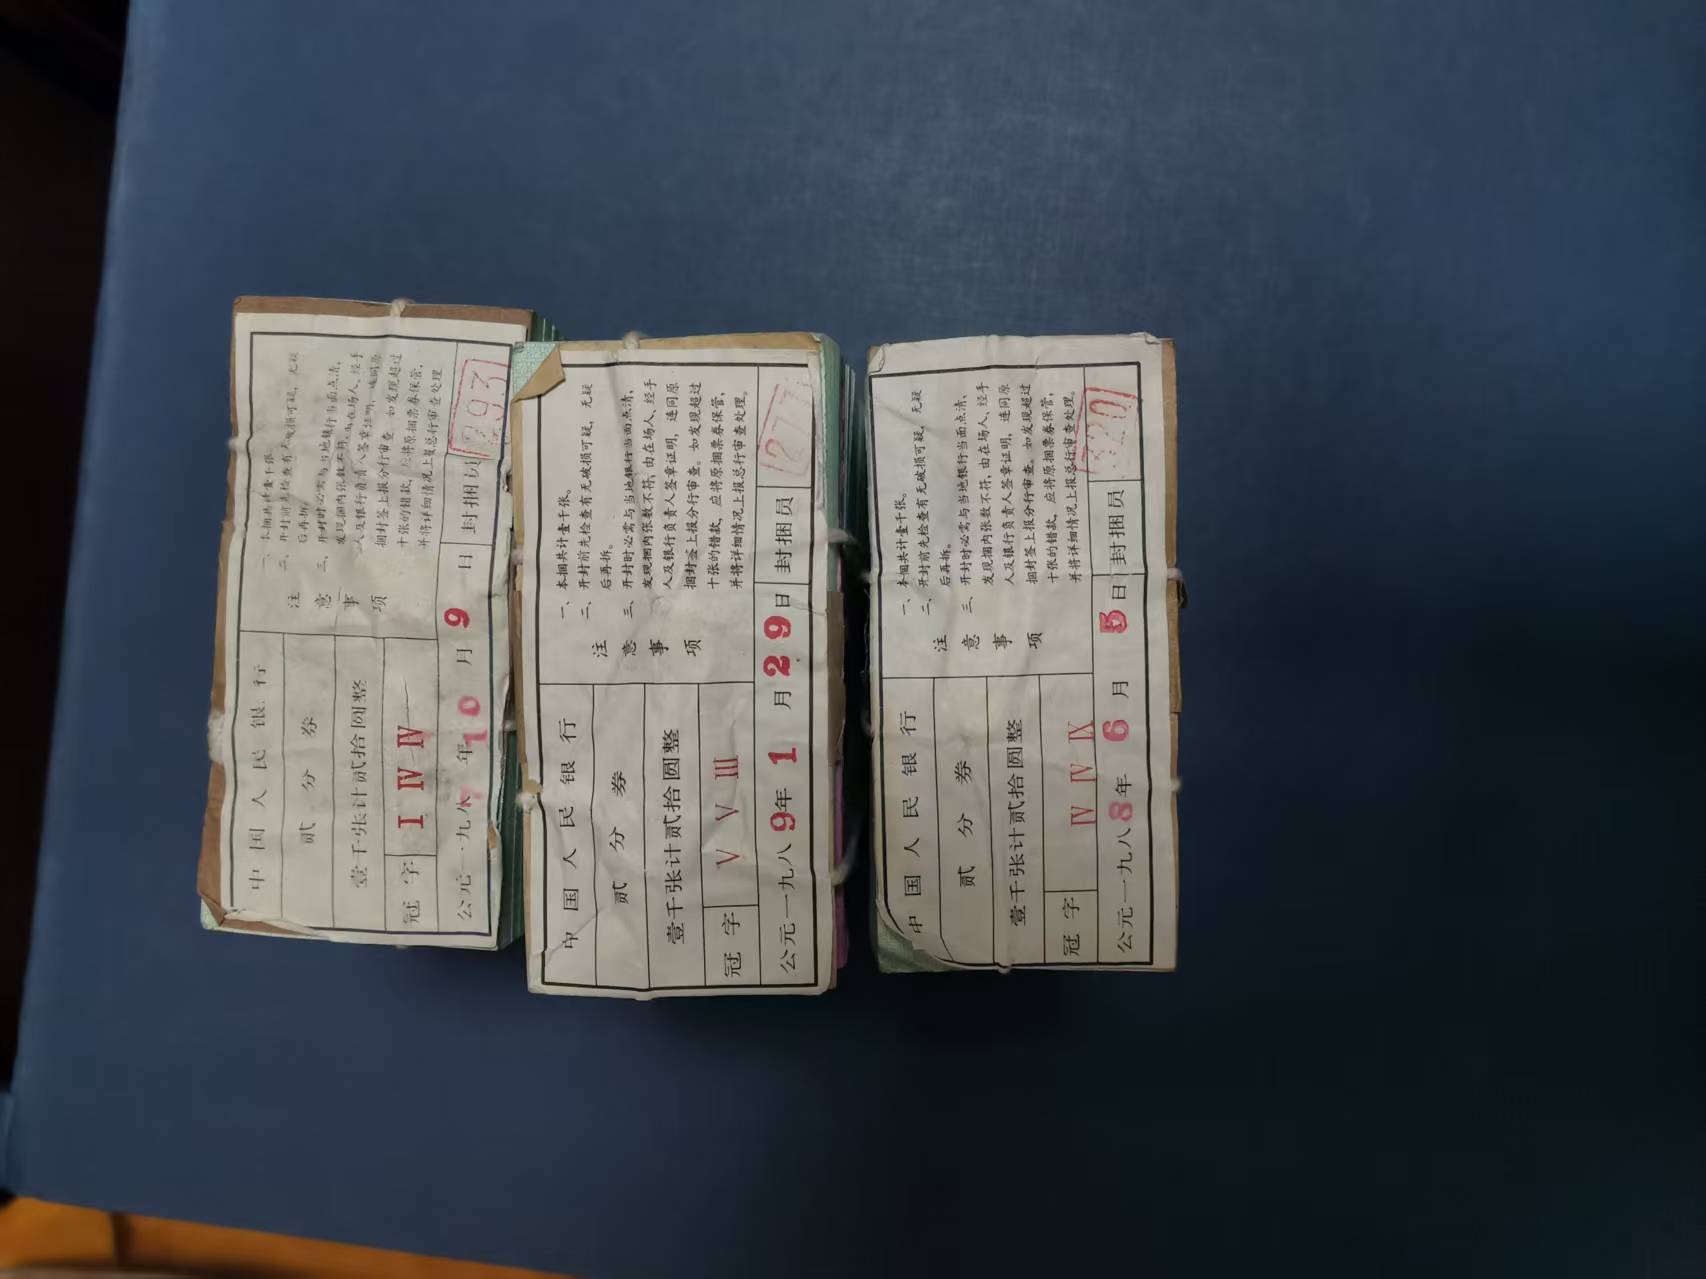 中国人民银行
贰分券
壹千张计贰拾圆整
冠字 I IV IV
注意事项
一、本捆共计壹千张。
二、开封前先检查有无破损可疑，无疑
后再拆。
三、开封时必需与当地银行当面点清，
发现捆内张数不符，由在场人、经手
人及银行负责人签章证明，连同原
捆封签上报分行审查。如发现超过
十张的错款，应将原捆票券保管，
并将详细情况上报总行审查处理
公元一九八 年 10 月 9 日 封捆员 293
中国人民银行
贰分券
壹千张计贰拾圆整
冠字 V V III
注意事项
一、本捆共计壹千张。
二、开封前先检查有无破损可疑，无疑
后再拆。
三、开封时必需与当地银行当面点清，
发现捆内张数不符，由在场人、经手
人及银行负责人签章证明，连同原
捆封签上报分行审查。如发现超过
十张的错款，应将原捆票券保管，
并将详细情况上报总行审查处理。
公元一九八9年 1 月 29 日 封捆员 277
中国人民银行
贰分券
壹千张计贰拾圆整
冠字 IV IV IX
注意事项
一、本捆共计壹千张。
二、开封前先检查有无破损可疑，无疑
后再拆。
三、开封时必需与当地银行当面点清、
发现捆内张数不符，由在场人、经手
人及银行负责人签章证明，连同原
捆封签上报分行审查。如发现超过
十张的错款，应将原捆票券保管，
并将详细情况上报总行审查处理。
公元一九八8年 6 月 5 日 封捆员 220